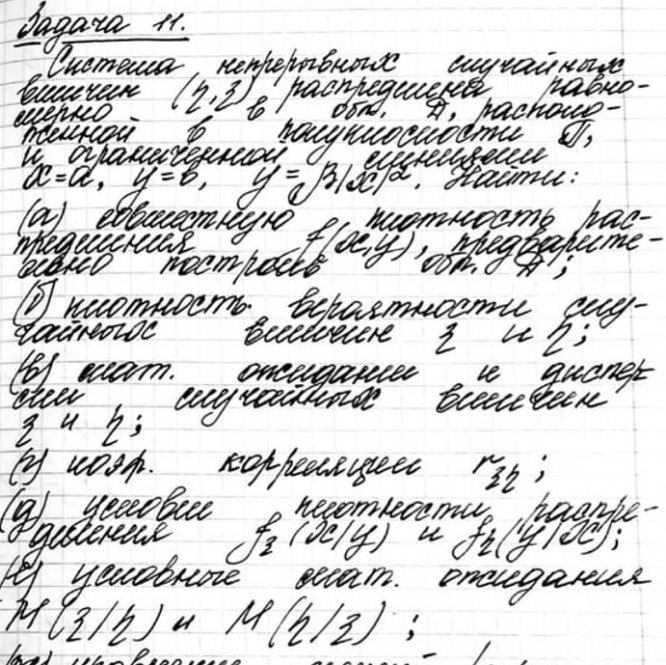 Задача 11.
Система непрерывных случайных
величин (ξ,η) распределена равно-
мерно в обл. D, располо-
женной в полуплоскости П,
и ограниченной линиями
x=a, y=b, y=β|x|^α. Найти:
(а) совместную плотность рас-
пределения f(x,y), предварите-
льно построив обл. D;
(б) плотность вероятности слу-
чайных величин ξ и η;
(в) мат. ожидании и диспер
сии случайных величин
ξ и η;
(г) коэф. корреляции r_ξη;
(д) условн плотности распре-
деления f_ξ(x/y) и f_η(y/x);
(е) условные мат. ожидания
M(ξ/η) и M(η/ξ);